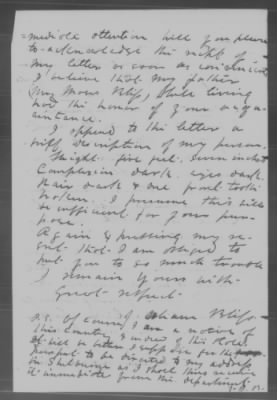 mediate attention will you please
to acknowledge the receipt of
my letter as soon as convenient
I believe that my father
Mr. Moses Bliss, while living
had the honor of your acqu-
aintance.
I append to this letter a
brief description of my person.
Height five feet seven inches
Complexion dark eyes dark
Hair dark & one front tooth
broken. I presume this will
be sufficient for your pur-
pose.
Again expressing my re-
gret that I am obliged to
put you to so much trouble
I remain Yours with
Great respect
Bliss
P.S. Of course I am a native of
this Country & indeed of this State.
It will be better I suppose for the
passport to be directed to my address
in as I shall thus receive
it immediate from the department.